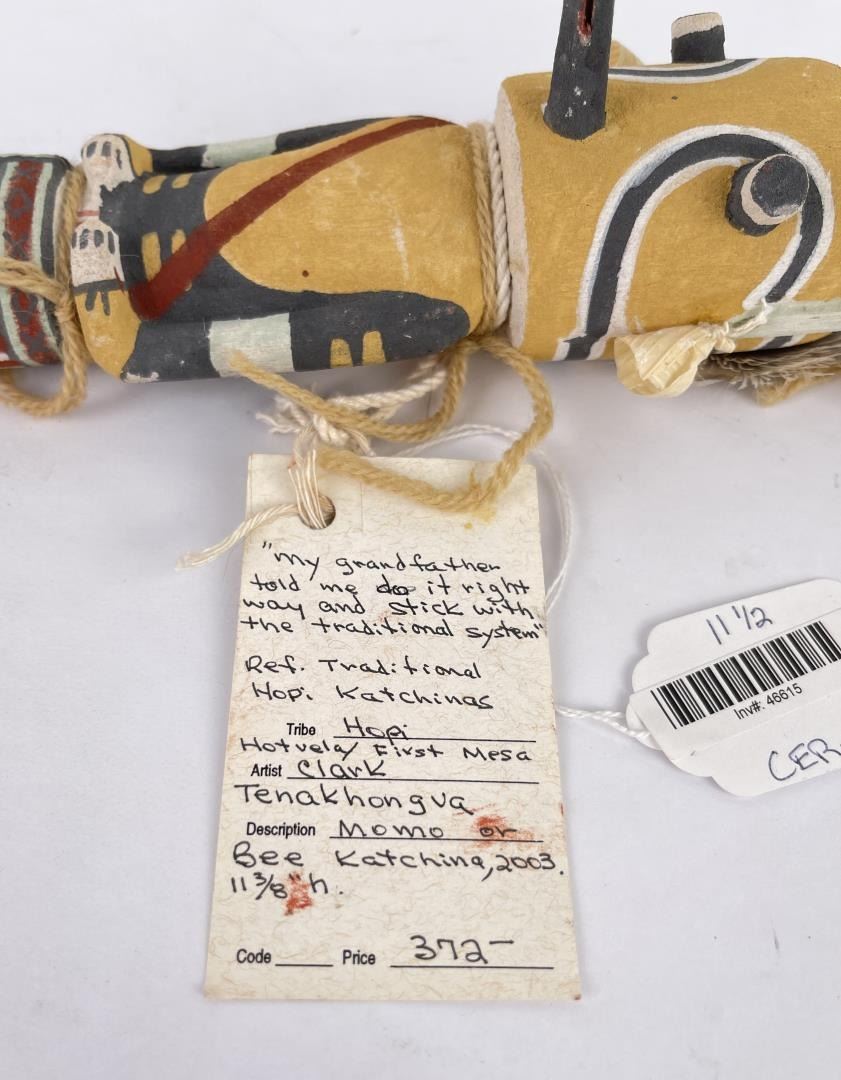 "My grandfather
told me do it right
way and stick with
the traditional system"
Ref. Traditional
Hopi Katchinas
Tribe Hopi
Hotvela/ First Mesa
Artist Clark
Tenakhongva
Description Momo or
Bee Katchina, 2003.
11 3/8" h.
Code Price 372-
11 1/2
Inv#: 46615
CER